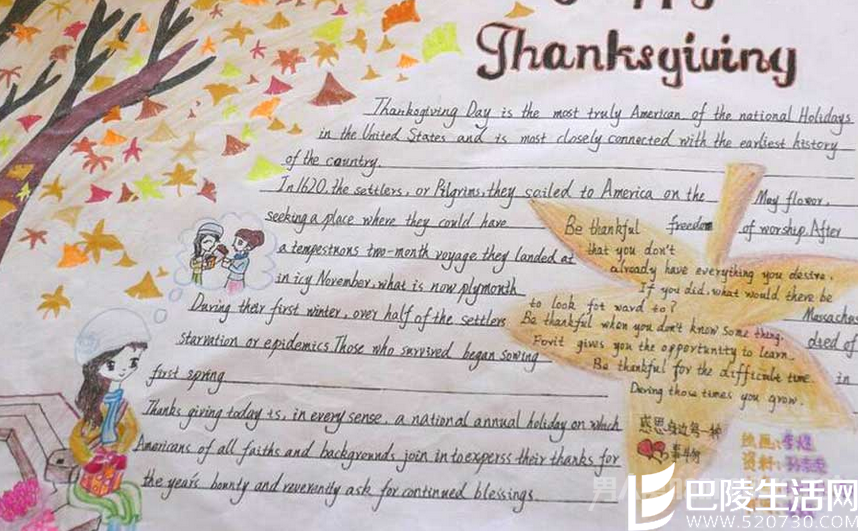 Thanksgiving
Thanksgiving Day is the most truly American of the national Holidays
in the United States and is most closely connected with the earliest history
of the country.
In 1620, the settlers, or Pilgrims, they sailed to America on the May flower,
seeking a place where they could have freedom of worship. After
a tempestrons two-month voyage they landed at
in icy November, what is now plymonth
Massachus
During their first winter, over half of the settlers died of
starvation or epidemics Those who survived began sowing in
first spring
Thanks giving today is, in every sense, a national annual holiday on which
Americans of all faiths and backgrounds join in to experss their thanks for
the year's bounty and reverently ask for continued blessings.
Be thankful
that you don't
already have everything you desire.
If you did, what would there be
to look fot ward to?
Be thankful when you don't know some thing.
Fovit gives you the opportunity to learn.
Be thankful for the difficult time.
During those times you grow.
感恩身边每一种
事物
绘画:李煜
资料:
巴陵生活网
www.520730.com